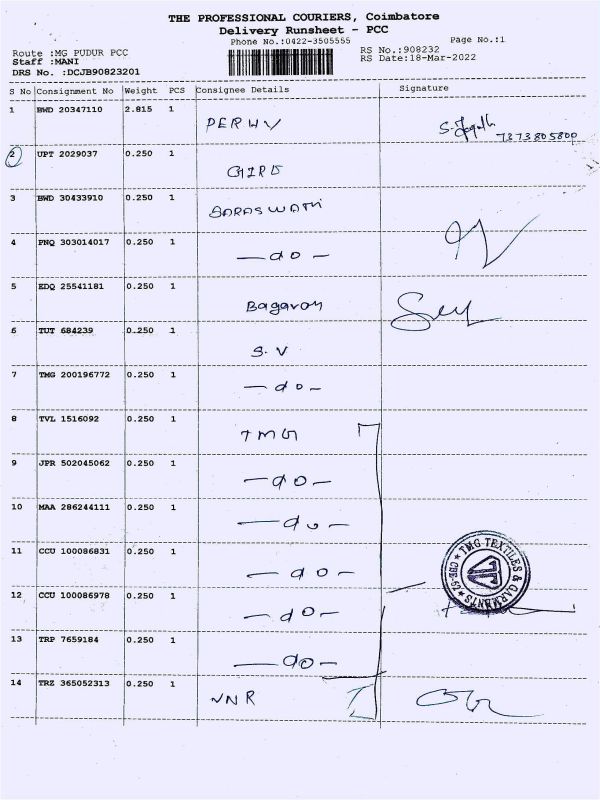 THE PROFESSIONAL COURIERS, Coimbatore
Delivery Runsheet - PCC
Phone No.:0422-3505555 Page No.:1
Route :MG PUDUR PCC RS No.:908232
Staff :MANI RS Date:18-Mar-2022
DRS No. :DCJB90823201
S No Consignment No Weight PCS Consignee Details Signature
1 BWD 20347110 2.815 1
7373805800
2 UPT 2029037 0.250 1
3 BWD 30433910 0.250 1 SARASWATHI
4 PNQ 303014017 0.250 1 — do —
5 EDQ 25541181 0.250 1 Bagavan
6 TUT 684239 0.250 1 S.V
7 TMG 200196772 0.250 1 — do —
8 TVL 1516092 0.250 1 TMG
9 JPR 502045062 0.250 1 — do —
10 MAA 286244111 0.250 1 — do —
11 CCU 100086831 0.250 1 — do —
TMG TEXTILES & GARMENTS
12 CCU 100086978 0.250 1 — do —
13 TRP 7659184 0.250 1 — do —
14 TRZ 365052313 0.250 1 VNR